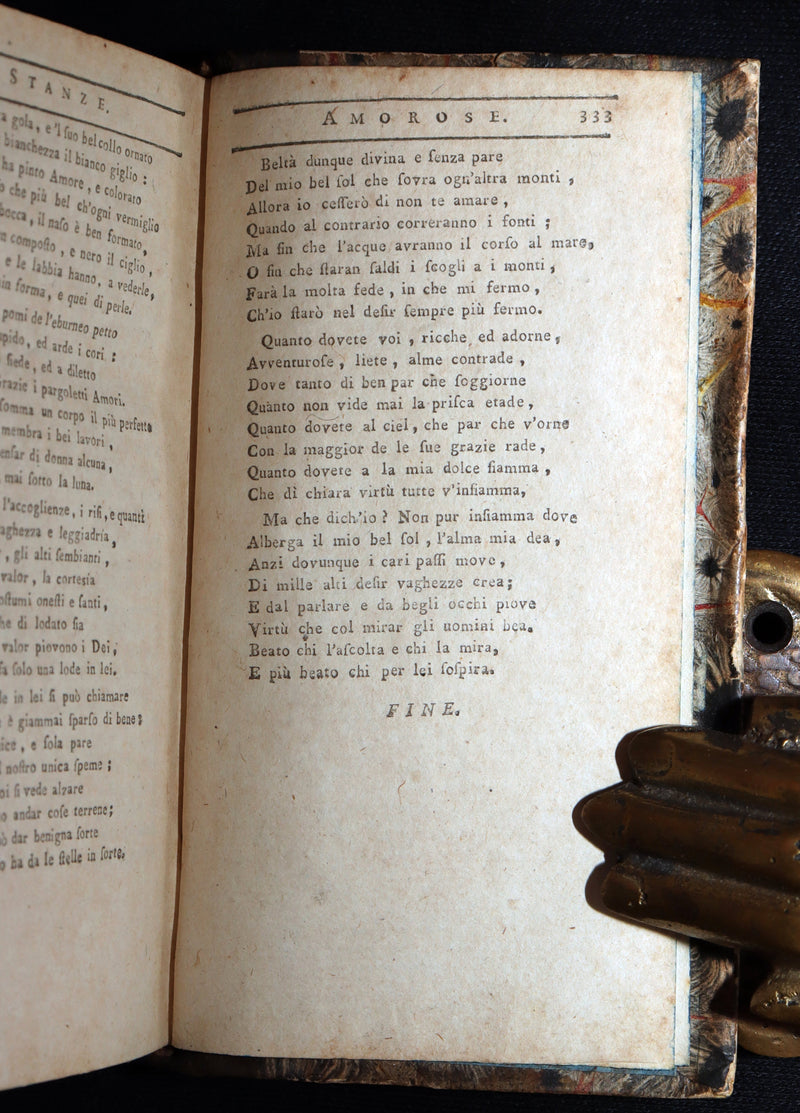 STANZE.
gola, e'l ſuo bel collo ornato
bianchezza il bianco giglio :
ha pinto Amore, e colorato
che più bel ch'ogni vermiglio
bocca, il naſo è ben formato,
compoſto, e nero il ciglio,
e le labbia hanno, a vederle,
forma, e quei di perle.
pomi de l'eburneo petto
ed arde i cori :
ſiede, ed a diletto
i pargoletti Amori.
un corpo il più perfetto
membra i bei lavori,
di donna alcuna,
mai ſotto la luna.
l'accoglienze, i riſi, e quanti
e leggiadria,
gli alti ſembianti,
valor, la corteſia
oneſti e ſanti,
di lodato ſia
valor piovono i Dei,
ſolo una lode in lei.
in lei ſi può chiamare
è giammai ſparſo di bene;
e ſola pare
noſtro unica ſpeme ;
ſi vede alzare
andar coſe terrene;
dar benigna ſorte
ha da le ſtelle in ſorte.
AMOROSE. 333
Beltà dunque divina e ſenza pare
Del mio bel ſol che ſovra ogn'altra monti ,
Allora io ceſſerò di non te amare ,
Quando al contrario correranno i fonti ;
Ma ſin che l'acque avranno il corſo al mare,
O ſin che ſtaran ſaldi i ſcogli a i monti ,
Farà la molta fede , in che mi fermo ,
Ch'io ſtarò nel deſir ſempre più fermo.
Quanto dovete voi , ricche, ed adorne ,
Avventuroſe , liete , alme contrade ,
Dove tanto di ben par che ſoggiorne
Quanto non vide mai la priſca etade ,
Quanto dovete al ciel, che par che v'orne
Con la maggior de le ſue grazie rade ,
Quanto dovete a la mia dolce fiamma ,
Che di chiara virtù tutte v'infiamma,
Ma che dich'io ? Non pur infiamma dove
Alberga il mio bel ſol , l'alma mia dea ,
Anzi dovunque i cari paſſi move ,
Di mille alti deſir vaghezze crea ;
E dal parlare e da begli occhi piove
Virtù che col mirar gli uomini bea.
Beato chi l'aſcolta e chi la mira,
E più beato chi per lei ſoſpira.
FINE.